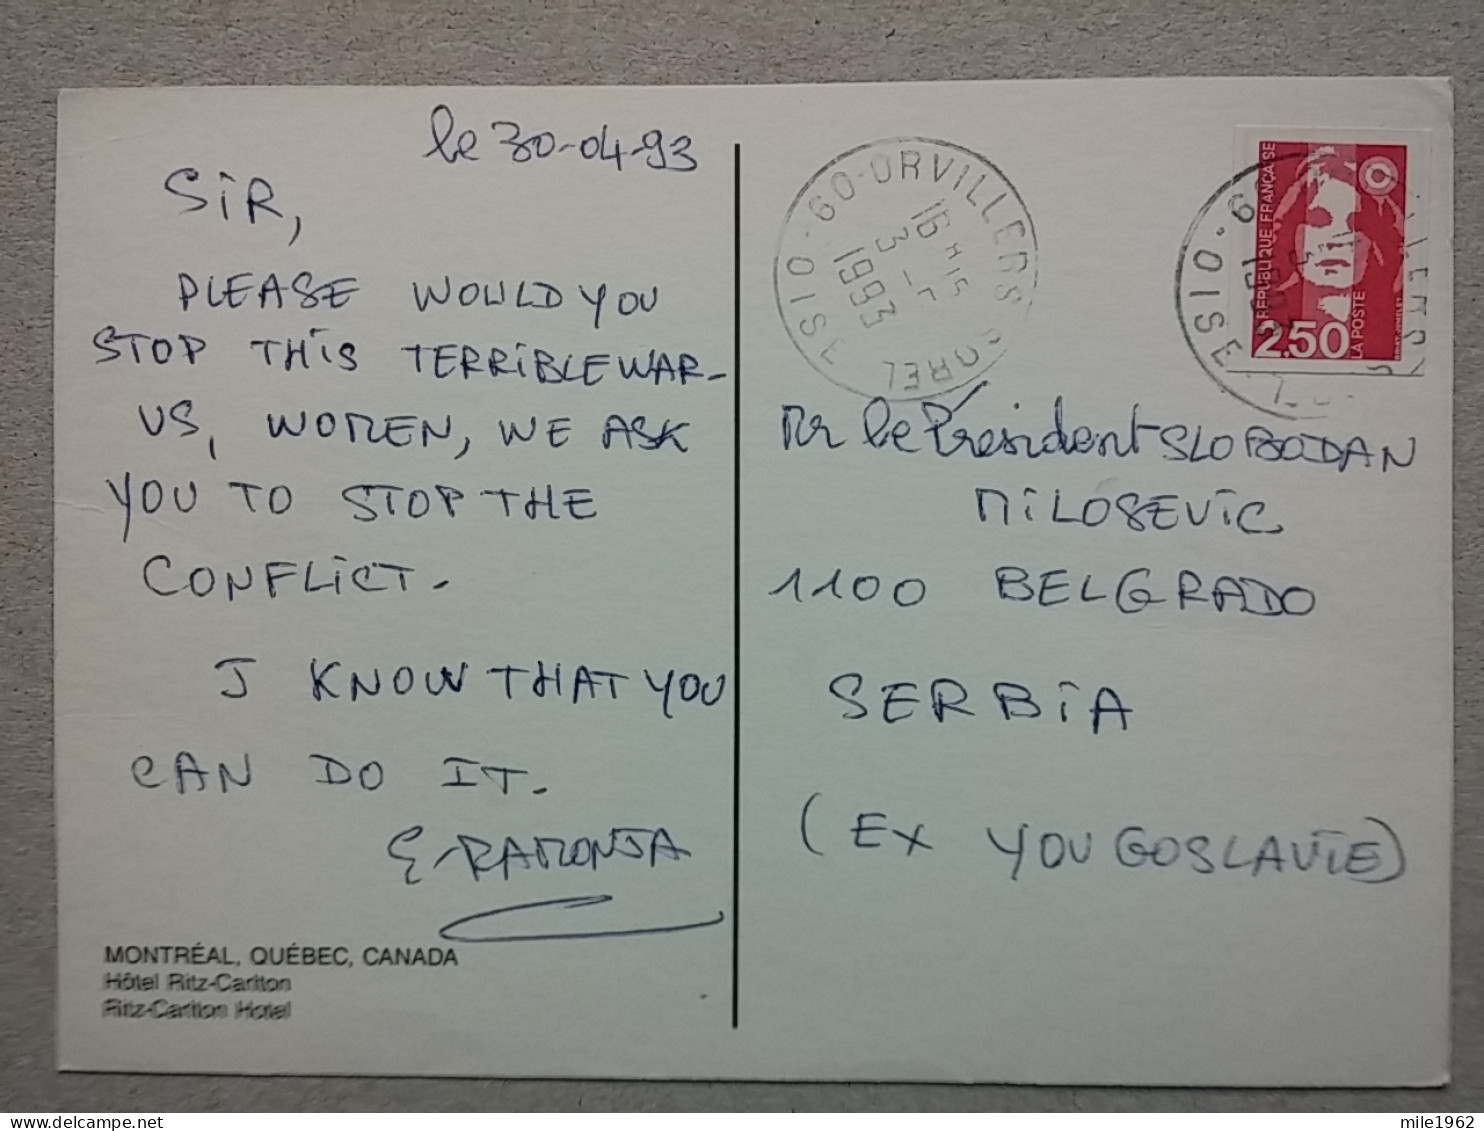 le 30-04-93
SIR,
PLEASE WOULD YOU
STOP THIS TERRIBLE WAR-
US, WOMEN, WE ASK
YOU TO STOP THE
CONFLICT.
I KNOW THAT YOU
CAN DO IT.
MONTRÉAL, QUÉBEC, CANADA
Hôtel Ritz-Carlton
Ritz-Carlton Hotel
60-ORVILLERS SOREL
OISE
16 H 15
3 - 5
1993
REPUBLIQUE FRANÇAISE
2,50
LA POSTE
OISE
Mr le Président SLOBODAN
MILOSEVIC
1100 BELGRADO
SERBIA
(EX YOUGOSLAVIE)
mile1962